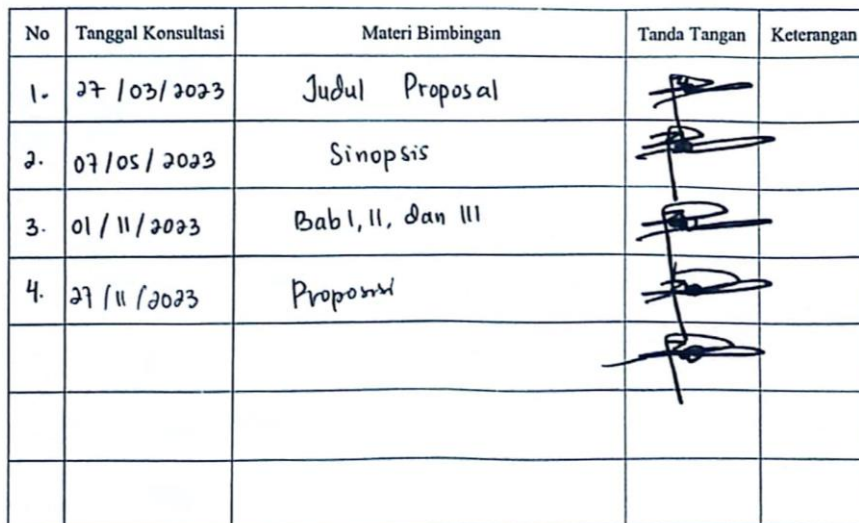 No Tanggal Konsultasi Materi Bimbingan Tanda Tangan Keterangan
1. 27/03/2023 Judul Proposal
2. 07/05/2023 Sinopsis
3. 01/11/2023 Bab I, II, dan III
4. 27/11/2023